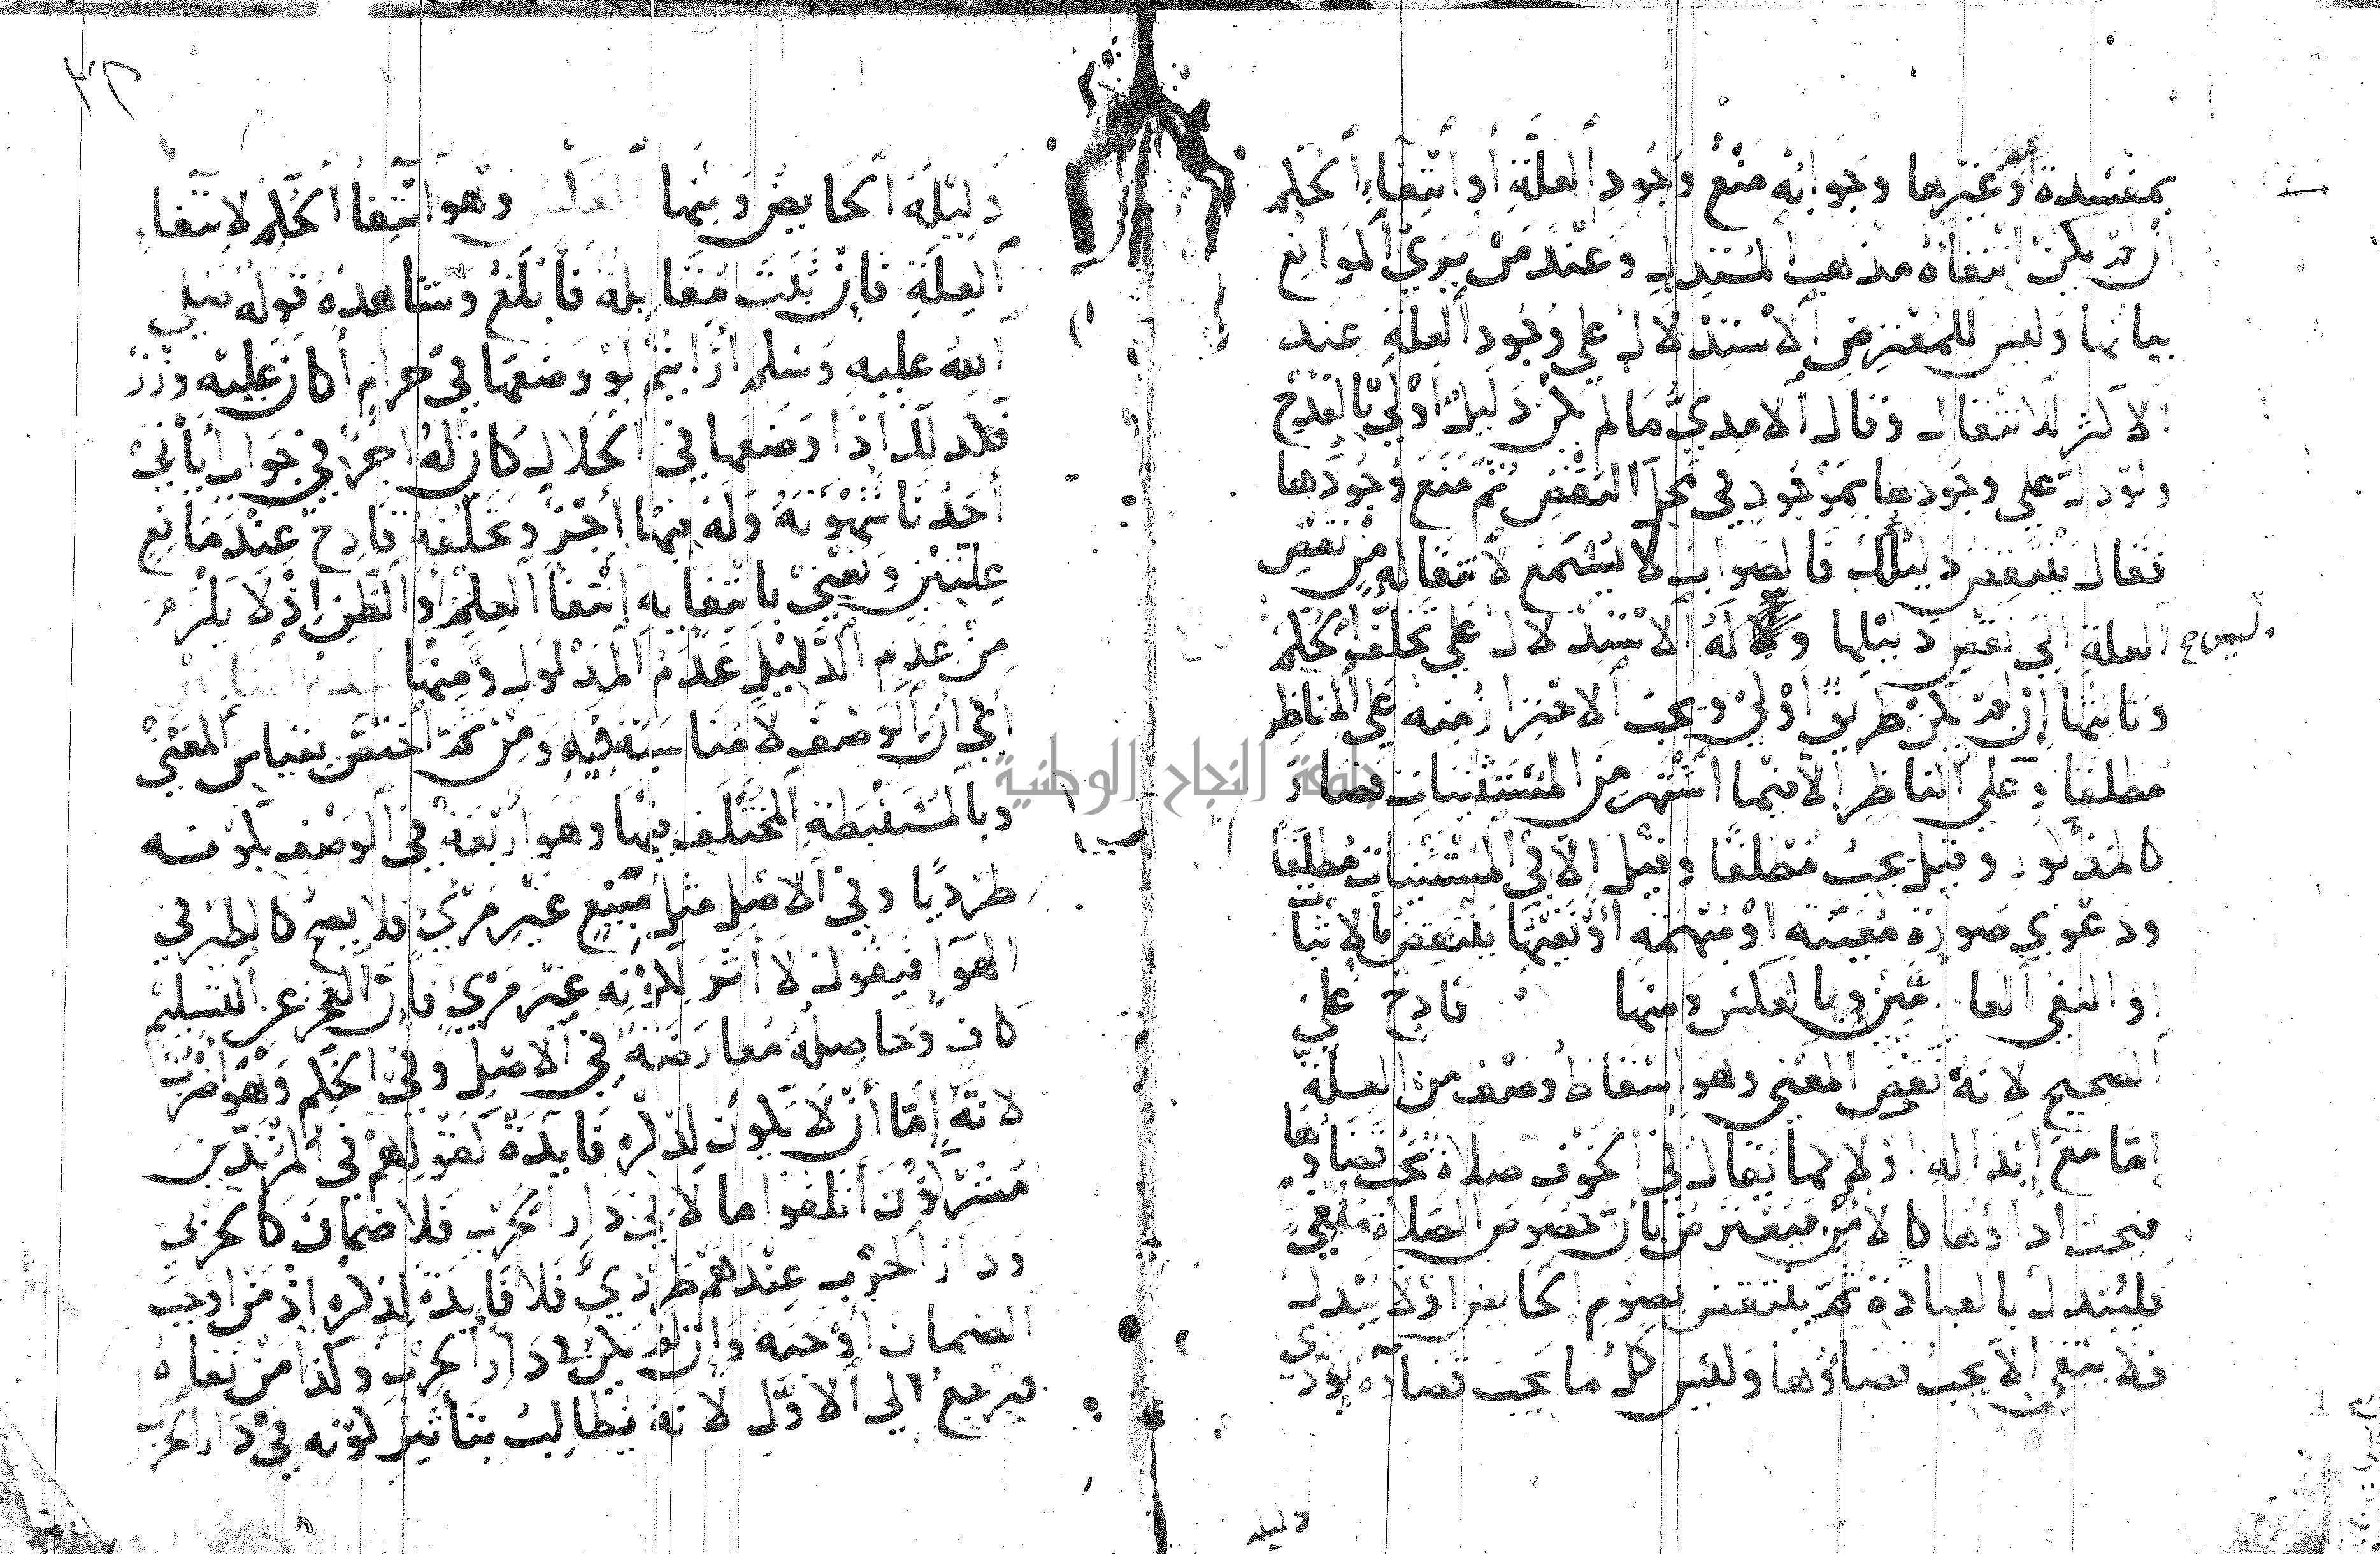 بمفسدة أو غيرها وجوابه منع وجود العلة أو انتفاء الحكم
إن لم يكن انتفاؤه مذهب المستدل وعند من يرى الموانع
بيانها وليس للمعترض الاستدلال على وجود العلة عند
الأكثر للانتقال وقال الآمدي ما لم يكن دليل أولى بالقدح
ولو دل على وجودها بموجود في محل النقض ثم منع وجودها
فقال ينتقض دليلك فالصواب لا يسمع لانتقاله من نقض
العلة إلى نقض دليلها و له الاستدلال على تخلف الحكم
ليس
وثالثها إن لم يكن طريق أولى ويجب الاحتراز منه على المناظر
مطلقا وعلى الناظر إلا فيما اشتهر من المستثنيات فصار
كالمذكور وقيل يجب مطلقا وقيل إلا في المستثنيات مطلقا
ودعوى صورة معينة أو مبهمة أو نفيها ينتقض بالإثبات
أو النفي العامين وبالعكس ومنها قادح على
الصحيح لأنه نقض المعنى وهو إسقاط وصف من العلة
إما مع إبداله كما يقال في الخوف صلاة يجب قضاؤها
فيجب أداؤها كالأمن فيعترض بأن خصوص الصلاة ملغى
فليبدل بالعبادة ثم ينتقض بصوم الحائض أو لا يبدل
فلا يبقى إلا يجب قضاؤها وليس كل ما يجب قضاؤه يؤدى
دليله
دليله الحائض ومنها العكس وهو انتفاء الحكم لانتفاء
العلة فإن ثبت مقابله فأبلغ وشاهده قوله صلى
الله عليه وسلم أرأيتم لو وضعها في حرام أكان عليه وزر
فكذلك إذا وضعها في الحلال كان له أجر في جواب أيأتي
أحدنا شهوته وله فيها أجر وتخلفه قادح عند مانع
علتين ونعني بانتفائه انتفاء العلم أو الظن إذ لا يلزم
من عدم الدليل عدم المدلول ومنها
أي أن الوصف لا مناسبة فيه ومن ثم اختص بقياس المعنى
وبالمستنبطة المختلف فيها وهو أربعة في الوصف بكونه
طرديا وفي الأصل مثل مبيع غير مرئي فلا يصح كالطير في
الهواء فيقول لا أثر لكونه غير مرئي فإن العجز عن التسليم
كاف وحاصله معارضة في الأصل وفي الحكم وهو أضرب
لأنه إما أن لا يكون لذكره فائدة كقولهم في المرتدين
مشركون أتلفوا مالا في دار الحرب فلا ضمان كالحربي
ودار الحرب عندهم طردي فلا فائدة لذكره إذ من أوجب
الضمان أوجبه وإن لم يكن في دار الحرب وكذا من نفاه
فيرجع إلى الأول لأنه يطالب بتأثير كونه في دار الحرب
جامعة النجاح الوطنية